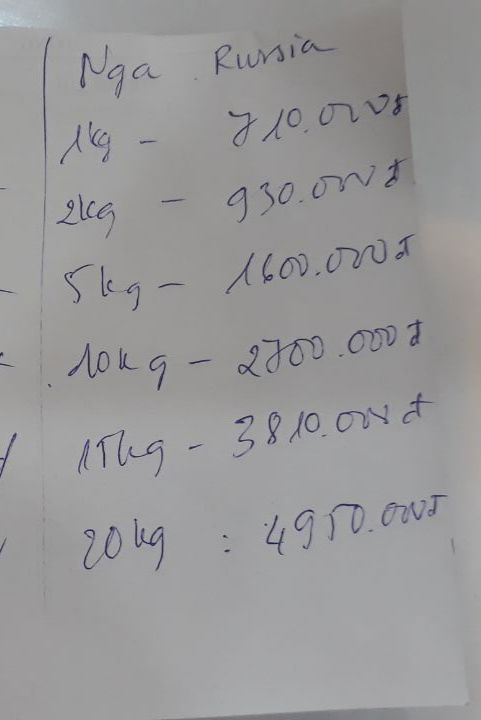 Nga Russia
1kg - 710.000đ
2kg - 930.000đ
5kg - 1600.000đ
10kg - 2700.000đ
15kg - 3810.000đ
20kg : 4950.000đ